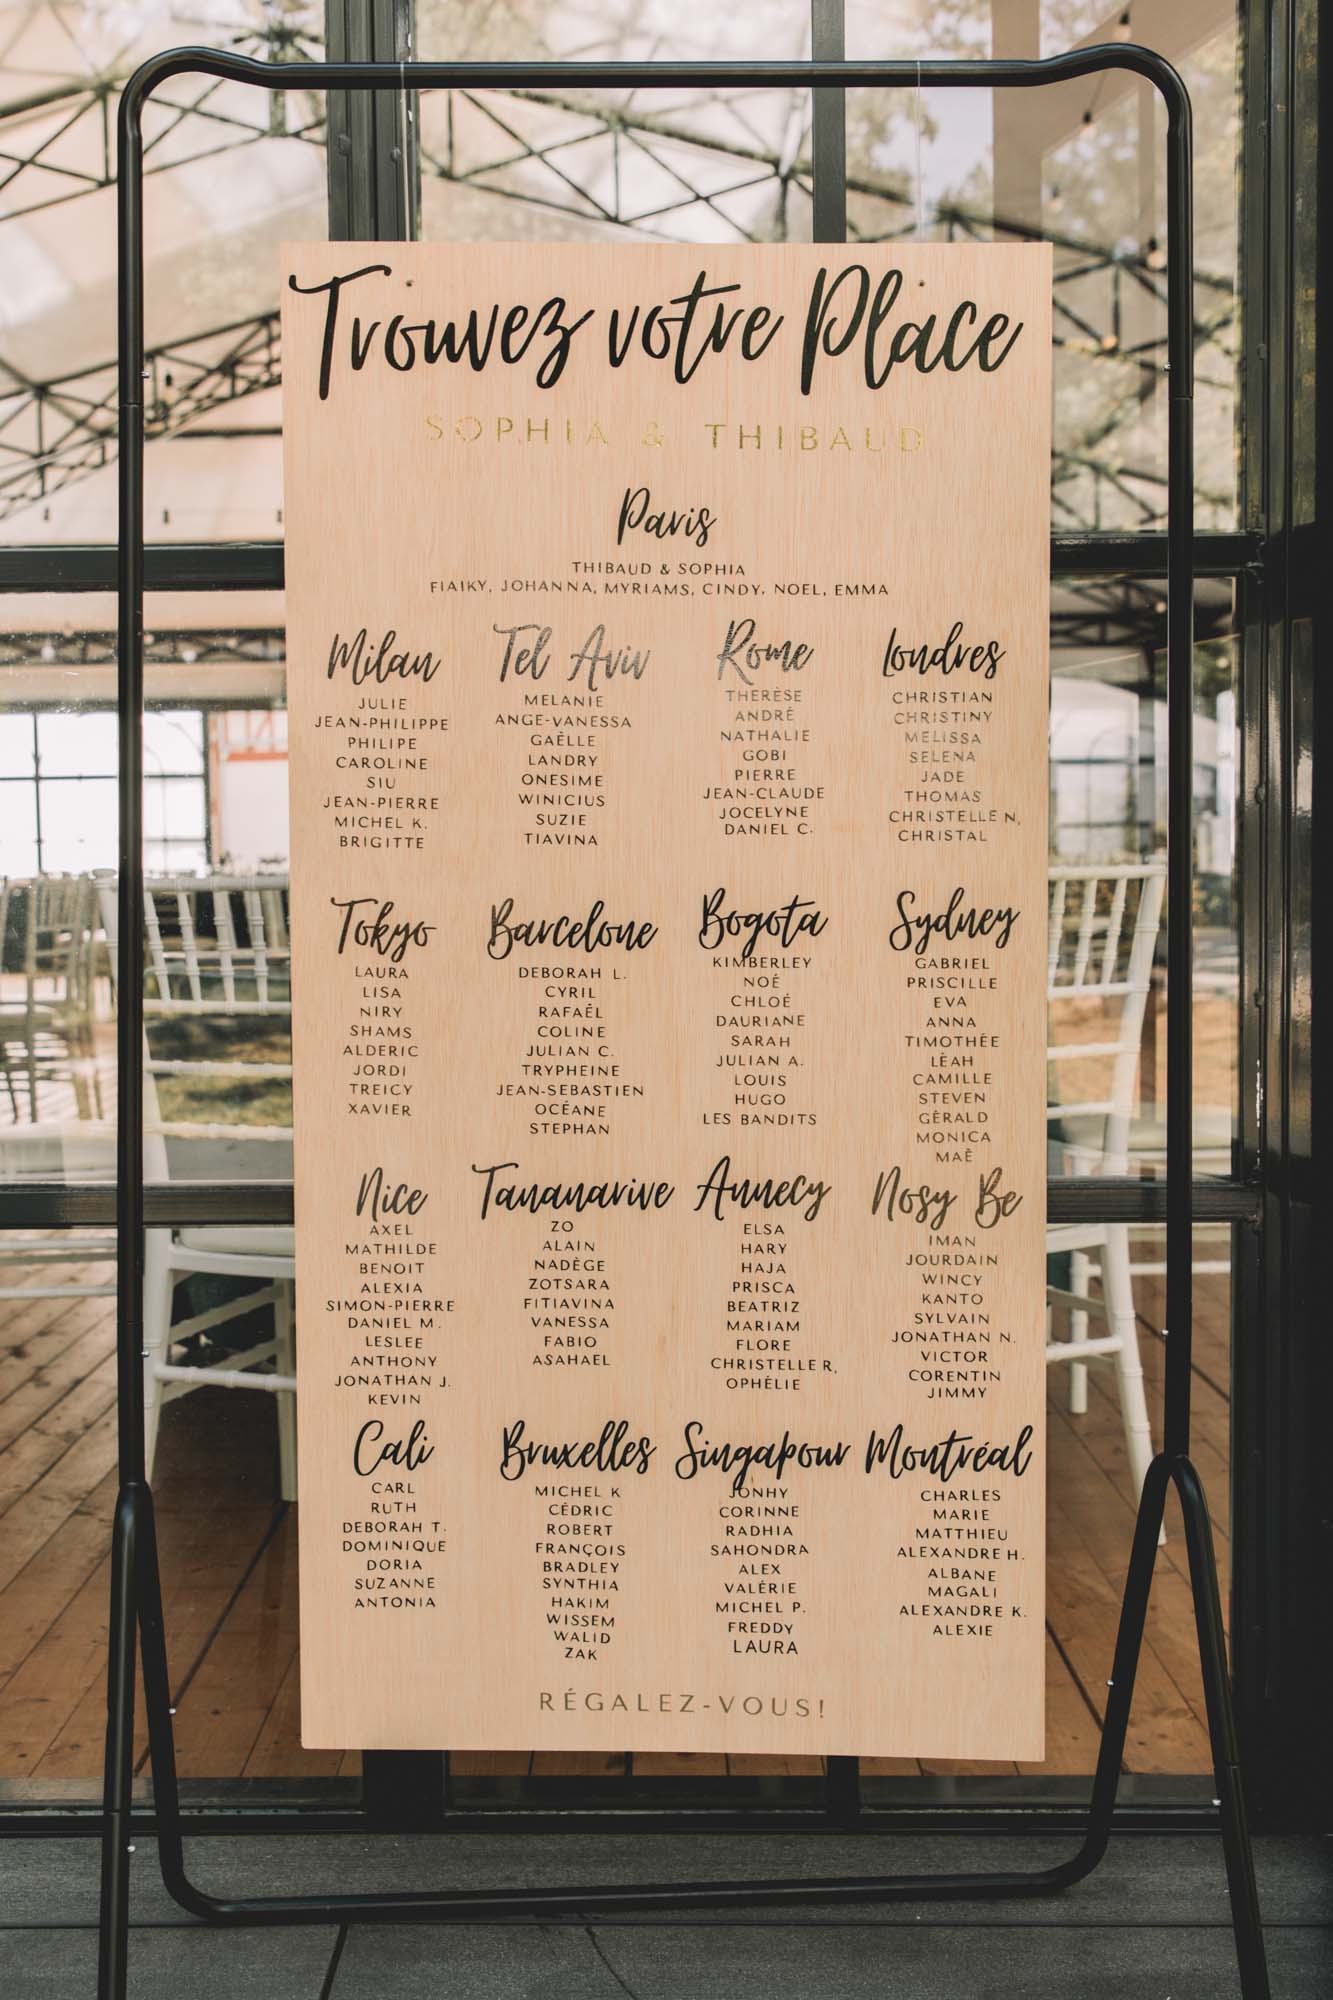 Trouvez votre Place
SOPHIA & THIBAUD
Paris
THIBAUD & SOPHIA
FIAIKY, JOHANNA, MYRIAMS, CINDY, NOEL, EMMA
Milan
JULIE
JEAN-PHILIPPE
PHILIPE
CAROLINE
SIU
JEAN-PIERRE
MICHEL K.
BRIGITTE
Tel Aviv
MELANIE
ANGE-VANESSA
GAËLLE
LANDRY
ONESIME
WINICIUS
SUZIE
TIAVINA
Rome
THERÈSE
ANDRÉ
NATHALIE
GOBI
PIERRE
JEAN-CLAUDE
JOCELYNE
DANIEL C.
Londres
CHRISTIAN
CHRISTINY
MELISSA
SELENA
JADE
THOMAS
CHRISTELLE N,
CHRISTAL
Tokyo
LAURA
LISA
NIRY
SHAMS
ALDERIC
JORDI
TREICY
XAVIER
Barcelone
DEBORAH L.
CYRIL
RAFAËL
COLINE
JULIAN C.
TRYPHEINE
JEAN-SEBASTIEN
OCÉANE
STEPHAN
Bogota
KIMBERLEY
NOÉ
CHLOÉ
DAURIANE
SARAH
JULIAN A.
LOUIS
HUGO
LES BANDITS
Sydney
GABRIEL
PRISCILLE
EVA
ANNA
TIMOTHÉE
LÈAH
CAMILLE
STEVEN
GÉRALD
MONICA
MAË
Nice
AXEL
MATHILDE
BENOIT
ALEXIA
SIMON-PIERRE
DANIEL M.
LESLEE
ANTHONY
JONATHAN J.
KEVIN
Tananarive
ZO
ALAIN
NADÈGE
ZOTSARA
FITIAVINA
VANESSA
FABIO
ASAHAEL
Annecy
ELSA
HARY
HAJA
PRISCA
BEATRIZ
MARIAM
FLORE
CHRISTELLE R,
OPHÉLIE
Nosy Be
IMAN
JOURDAIN
WINCY
KANTO
SYLVAIN
JONATHAN N.
VICTOR
CORENTIN
JIMMY
Cali
CARL
RUTH
DEBORAH T.
DOMINIQUE
DORIA
SUZANNE
ANTONIA
Bruxelles
MICHEL K
CÉDRIC
ROBERT
FRANÇOIS
BRADLEY
SYNTHIA
HAKIM
WISSEM
WALID
ZAK
Singapour
JONHY
CORINNE
RADHIA
SAHONDRA
ALEX
VALÉRIE
MICHEL P.
FREDDY
LAURA
Montréal
CHARLES
MARIE
MATTHIEU
ALEXANDRE H.
ALBANE
MAGALI
ALEXANDRE K.
ALEXIE
RÉGALEZ-VOUS!